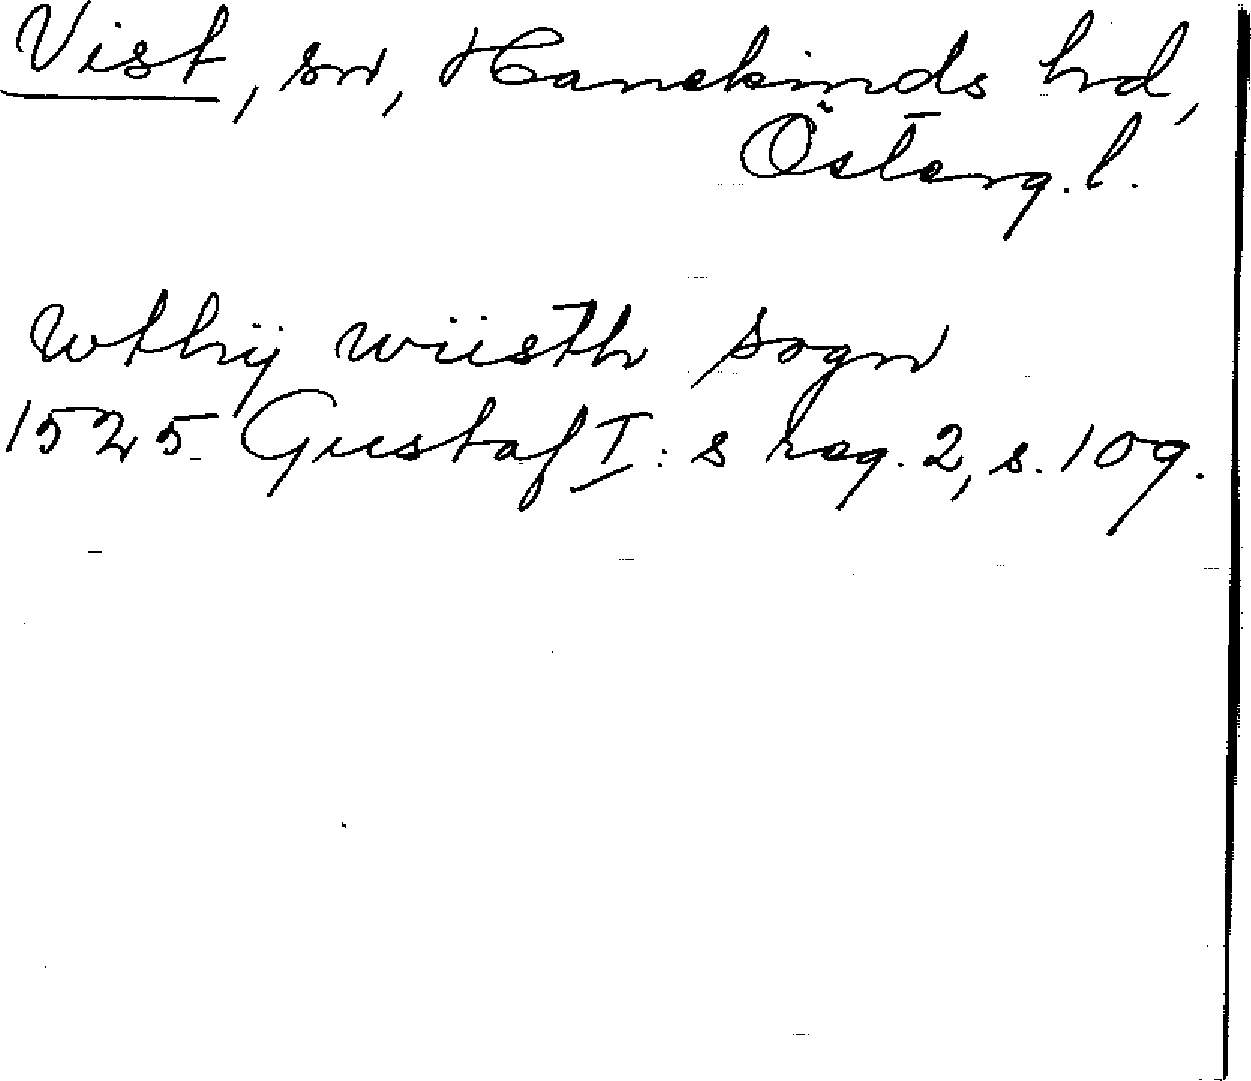 Vist, sn, Hanekinds hd,
Österg. l.
wthij wiisth sogn
1525 Gustaf I:s reg. 2, s. 109.